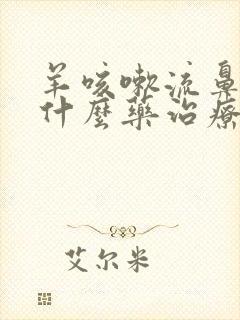 羊咳嗽流鼻
什麼藥治療
艾尔米